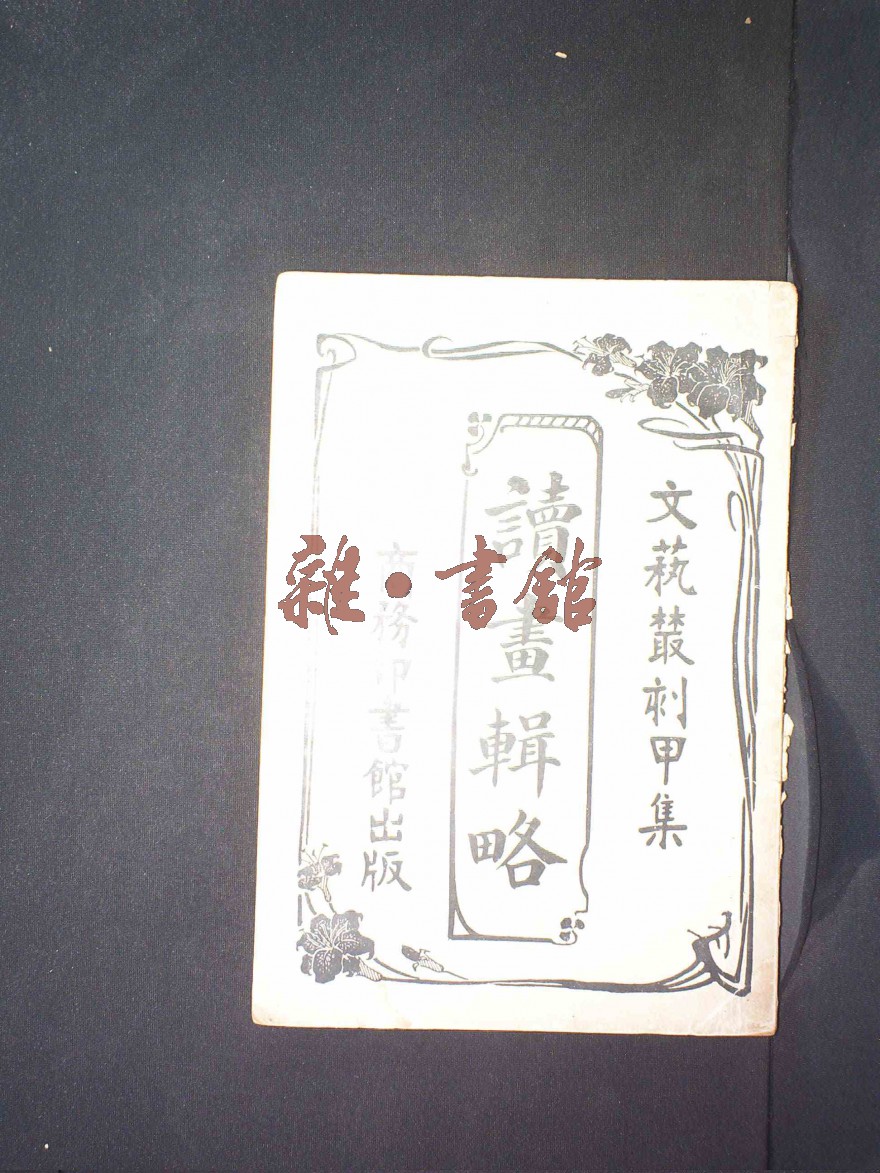 文藝叢刻甲集
讀畫輯略
商務印書館出版
雜·書館